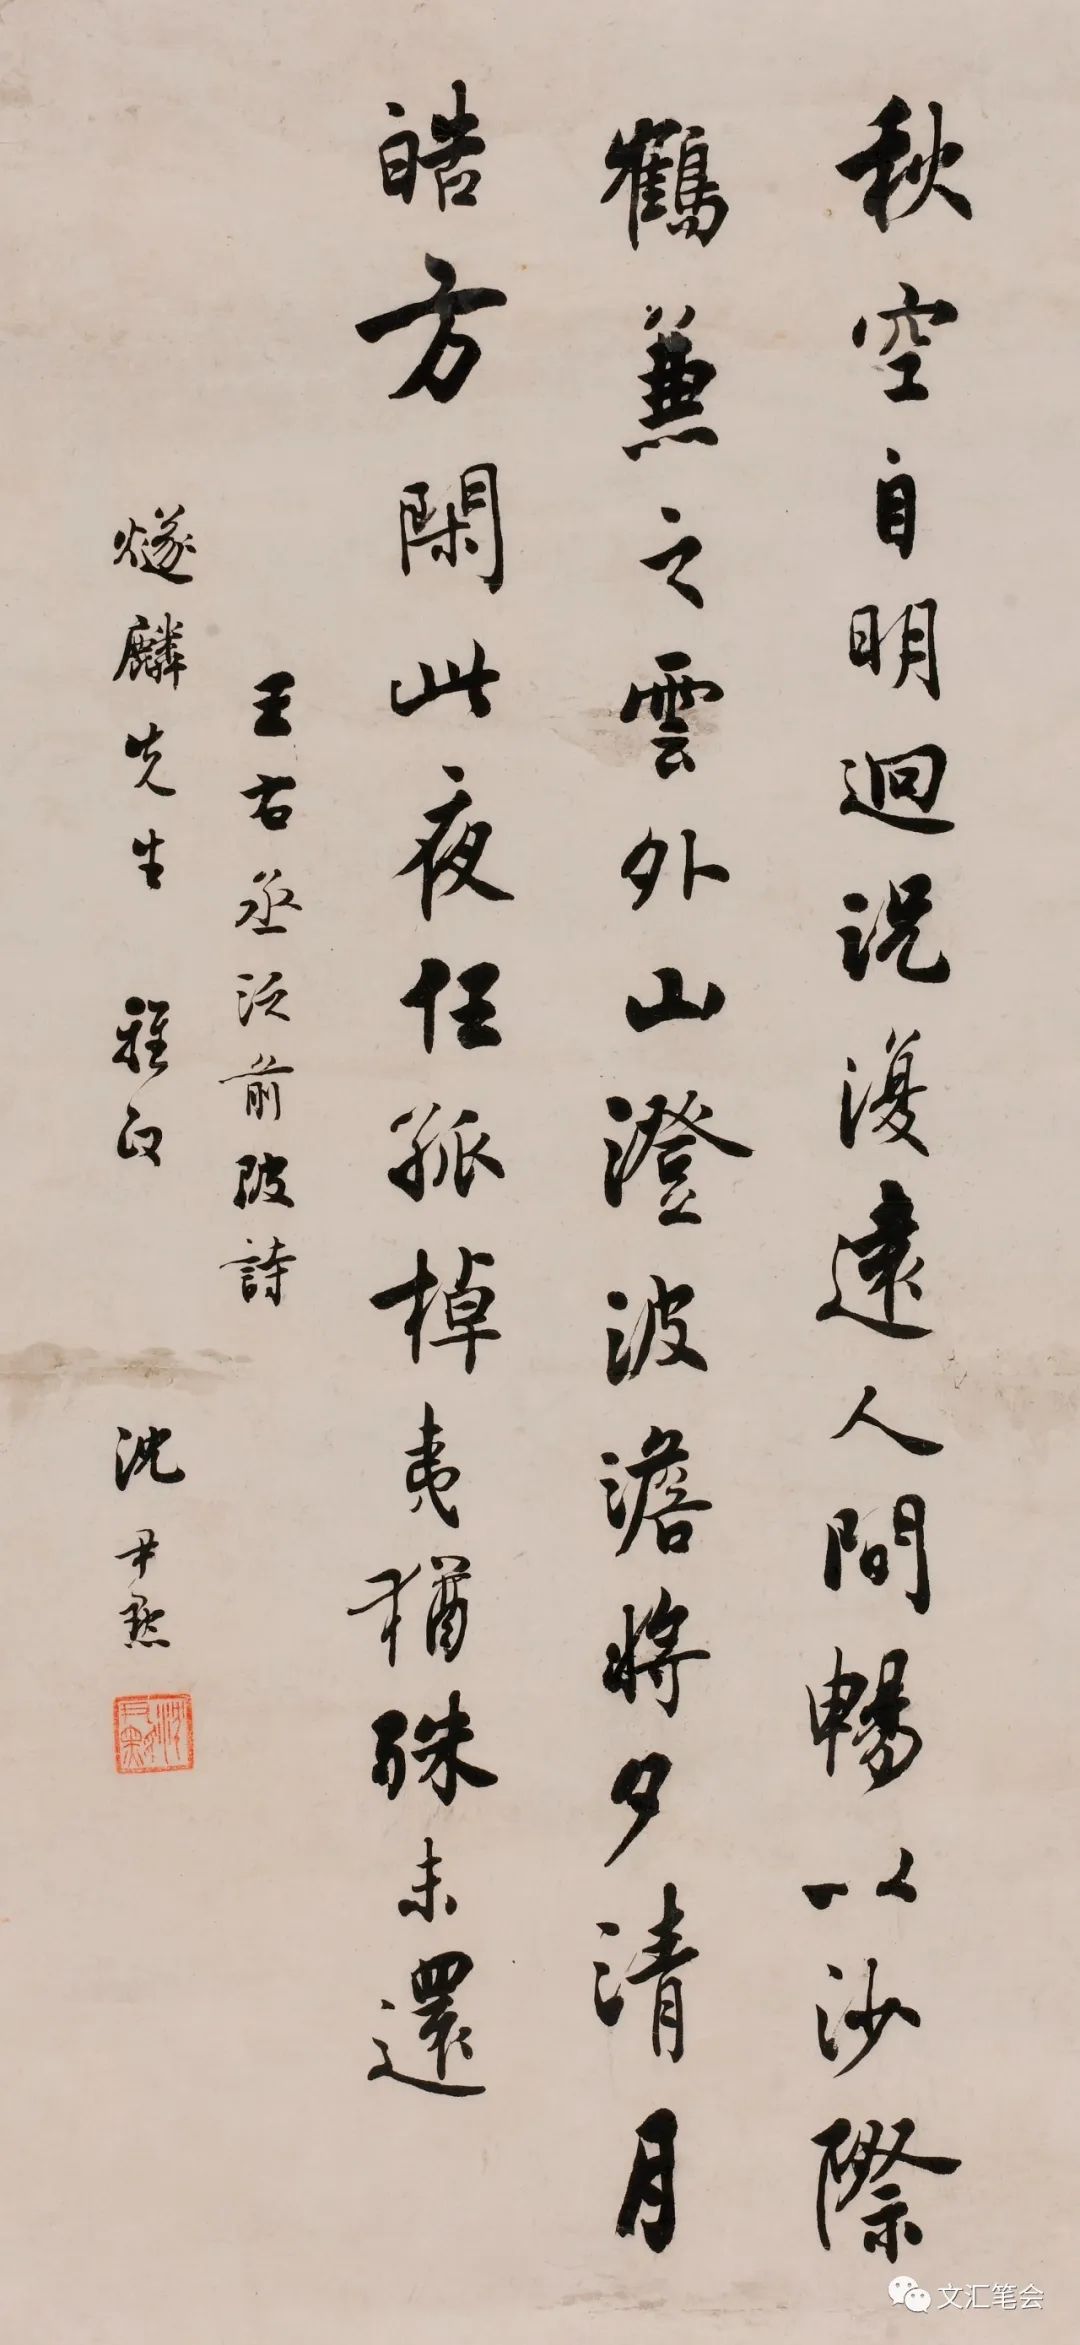 秋空自明迥況復遠人間暢以沙際
鶴兼之雲外山澄波澹將夕清月
皓方閑此夜任孤棹夷猶殊未還
王右丞泛前陂詩
燧麟先生 雅政
沈尹默
文汇笔会